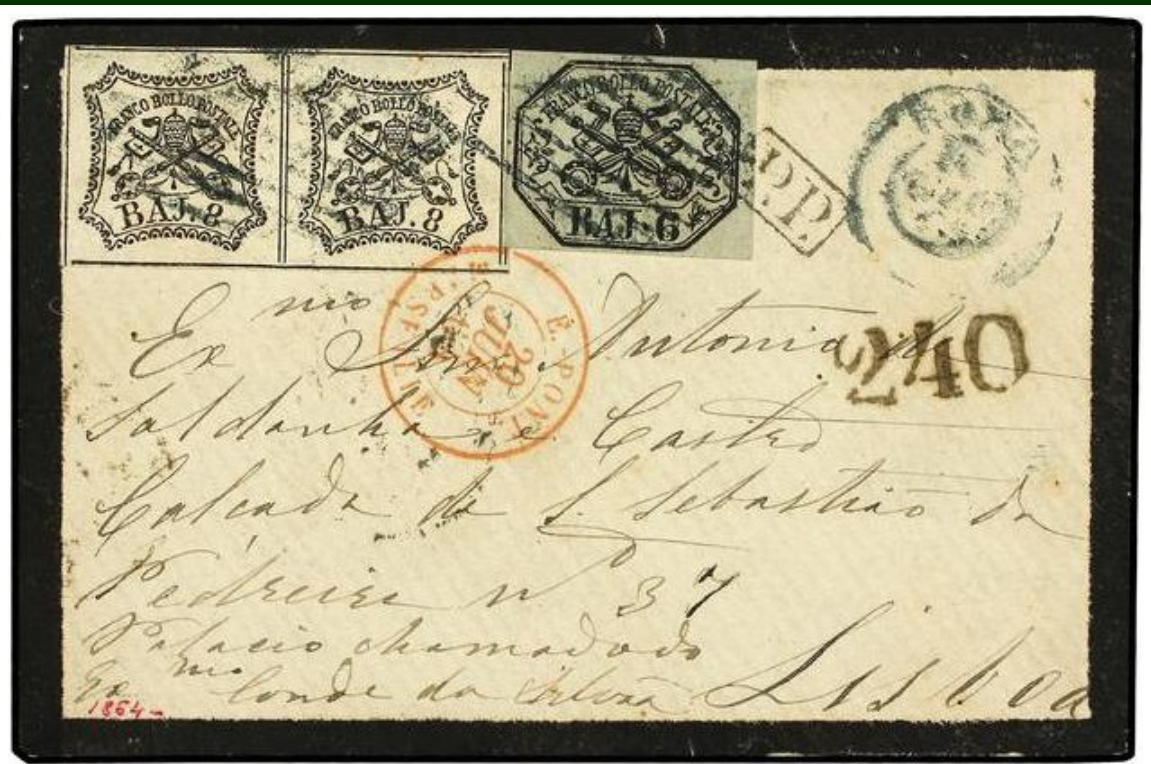 FRANCO BOLLO POSTALE
BAJ. 8
FRANCO BOLLO POSTALE
BAJ. 8
FRANCO BOLLO POSTALE
BAJ. 6
P.D.
ROMA
20
JUIN
240
Ex mo Snr. Antonio de
Saldanha e Castro
Calçada de S. Sebastião da
Pedreira nº 37
Palacio chamado do
Ex mo Conde da
Lisboa
1864-